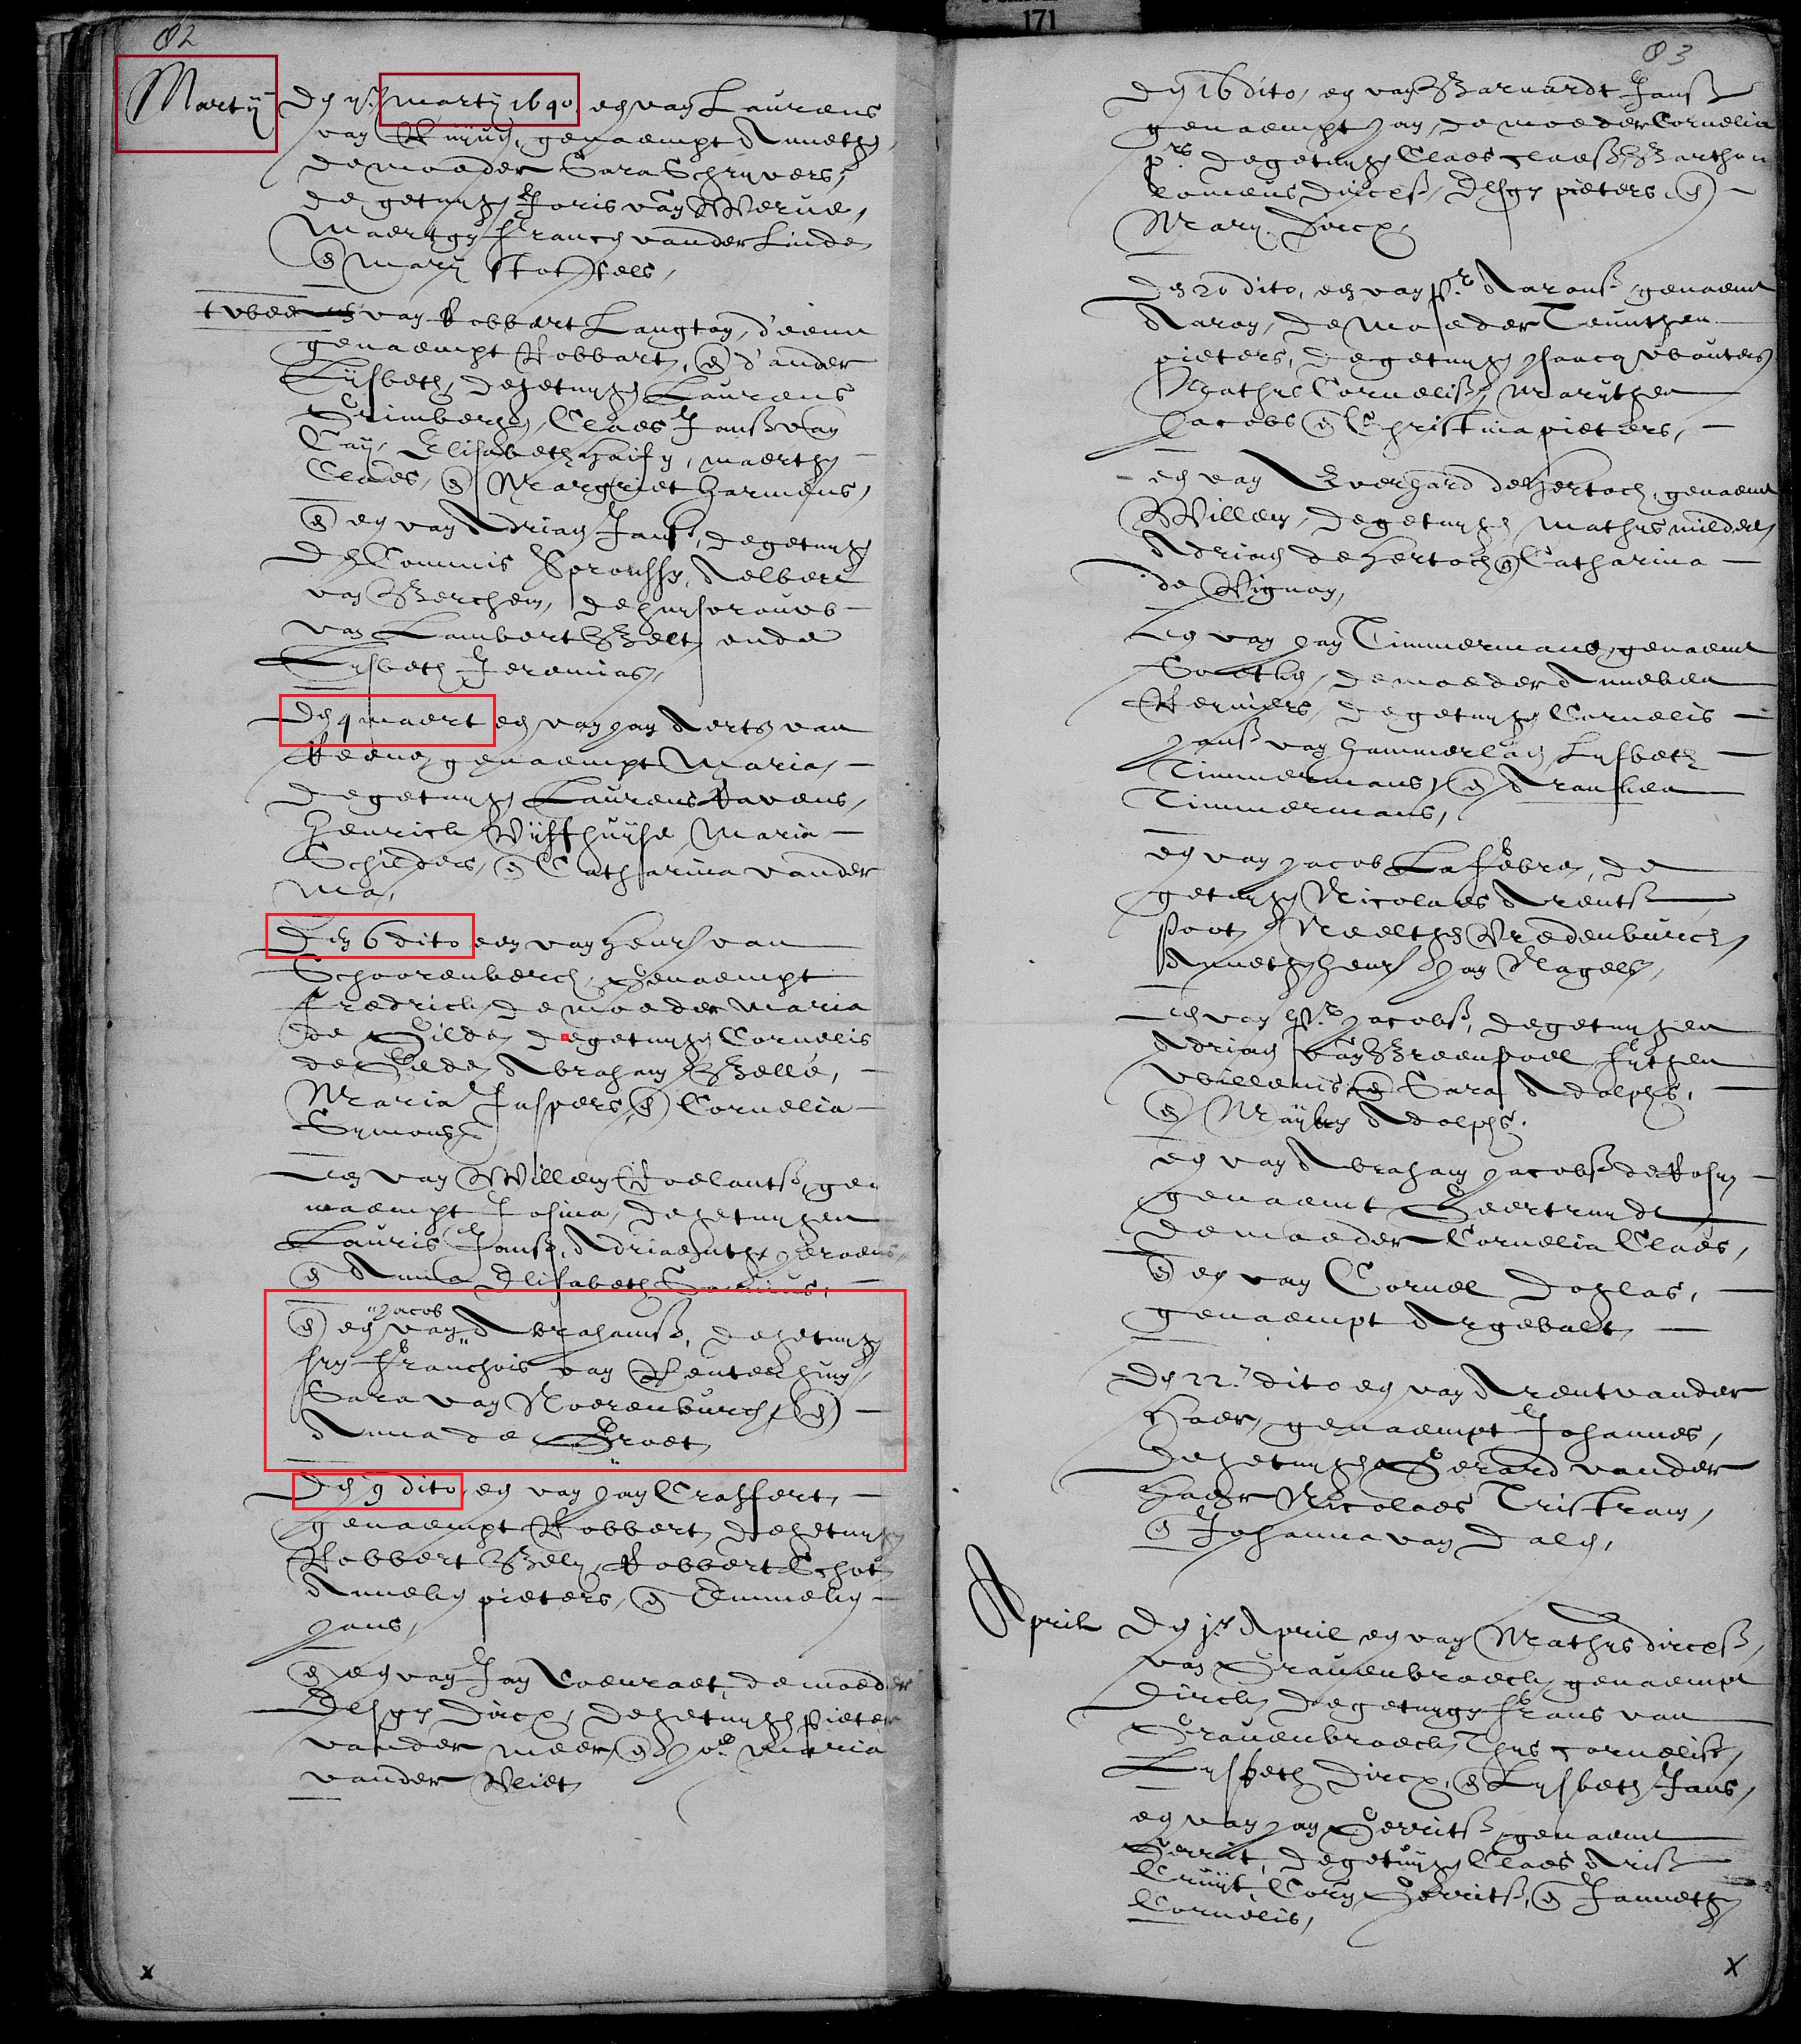 82
Martij
Den martij 1640 een van Laurens
van genaempt Annetgen,
de moeder Sara Schrijvers,
de getuygen Joris van Werve,
Maertgen Francen vander Linde
en Mary Stoffels,
twee van Robbert Langton, d'eene
genaempt Robbart, en d'ander
Lijsbeth, de getuygen Laurens
Grimbergen, Claes Janss van
Caij, Elisabeth, maertgen
Claes, en Margriet Harmens,
en een van Adriaen Janss, de getuygen
De Commis Aelbert
van Berchem, de huysvrouwe
van Lambert Belt, ende
Lysbeth Jeremias,
Den 4 maert een van Jan Aertsen van
genaempt Maria,
de getuygen Laurens Ravens,
Henrick Vijffhuijse, Maria
Schilders, en Catharina vander
Ma,
Den 6 dito een van Henr van
Schoorenberch, Genaempt
Fredrick, de moeder Maria
de Gilde, de getuygen Cornelis
de Abraham Bellé,
Maria Jaspers, en Cornelia
Symons
Een van Willem Roelantss, ge
naempt Josina, de getuygen
Lauris Janss, Adriaentgen Jeroens
en Anna Elisabeth
Jacob
en een van Abrahamss, de getuygen
Franchois van
Sara van Noerenburch, en
Anna de Groet
Den 9 dito, een van Jan Craffert,
genaempt Robbert, de getuygen
Robbert Bely, Robbert Schot
Anneken pieters, en Emmeken
Jans,
en een van Jan Coenraet, de moeder
Elsgen Dircx, de getuygen pieter
vander meer, en Maria
vander Vliet
x
171
83
Den 16 dito, een van Barnardt Janss
genaempt Jan, de moeder Cornelia
prs de getuygen Claes Claess, Barthol
lomeus Dircxss, Elsgen pieters, en
Mary Dircx,
Den 20 dito, een van pr. Aaronss, genaemt
Aaron, de moeder Teuntgen
pieters, de getuygen Isaacq Wouters,
Mathijs Corneliss, Marijtgen
Jacobs en Christina pieters,
een van Everhard de Hertoch, genaemt
Willem, de getuygen Mathijs
Adriaen de Hertoch en Catharina
de Vignon,
Een van Jan Timmermans, genaemt
de moeder Anneken
Reyniers, de getuygen Cornelis
Janss van Hammerlaen, Lysbeth
Timmermans, en
Timmermans,
een van Jacob La Febre, de
getuygen Nicolaes Arentss
poot, Neeltgen Vredenburch,
Annetgen Henr Jan Nagels,
Een van Jacobss, de getuygen
Adriaen van Breenpoel, Fytgen
Willems, en Sara Adolphs,
en Adolphs.
een van Abraham Jacobss de
genaemt Geertruydt
de moeder Cornelia Claes,
en een van Cornel Doglas,
genaempt Argebalt
Den 22. dito een van Arent vander
Haer, genaempt Johannes,
de getuygen Gerard vander
Haer Nicolaes Tristram,
en Johanna van Dalen,
April
Den jen April een van Mathijs Dircxss,
van Grauenbroeck, genaempt
Dirck, de getuygen Frans van
Grauenbroeck, Thys Corneliss,
Lysbeth Dircx, en Lysbeth Jans,
een van Jan Gerritss, genaemt
Gerrit, de getuijgen Claes Ariss
Cruijt, Gerritss, en Jannetgen
Cornelis,
x